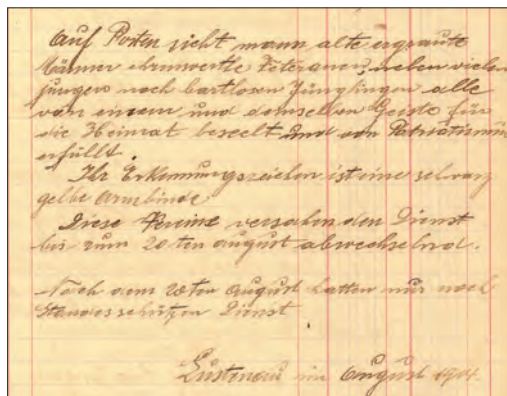 Auf Posten sieht mann alte ergraute
Männer ehrenwerthe Veteranen, neben vielen
jungen noch bartlosen Jünglingen alle
von einem und demselben Geiste für
die Heimat beseelt und von Patriotismus
erfüllt.
Ihr Erkennungszeichen ist eine schwarz
gelbe Armbinde
Diese Vereine versahen den Dienst
bis zum 20ten August abwechselnd.
Nach dem 20ten August hatten nur noch
Standesschützen Dienst
Lustenau im August 1914.